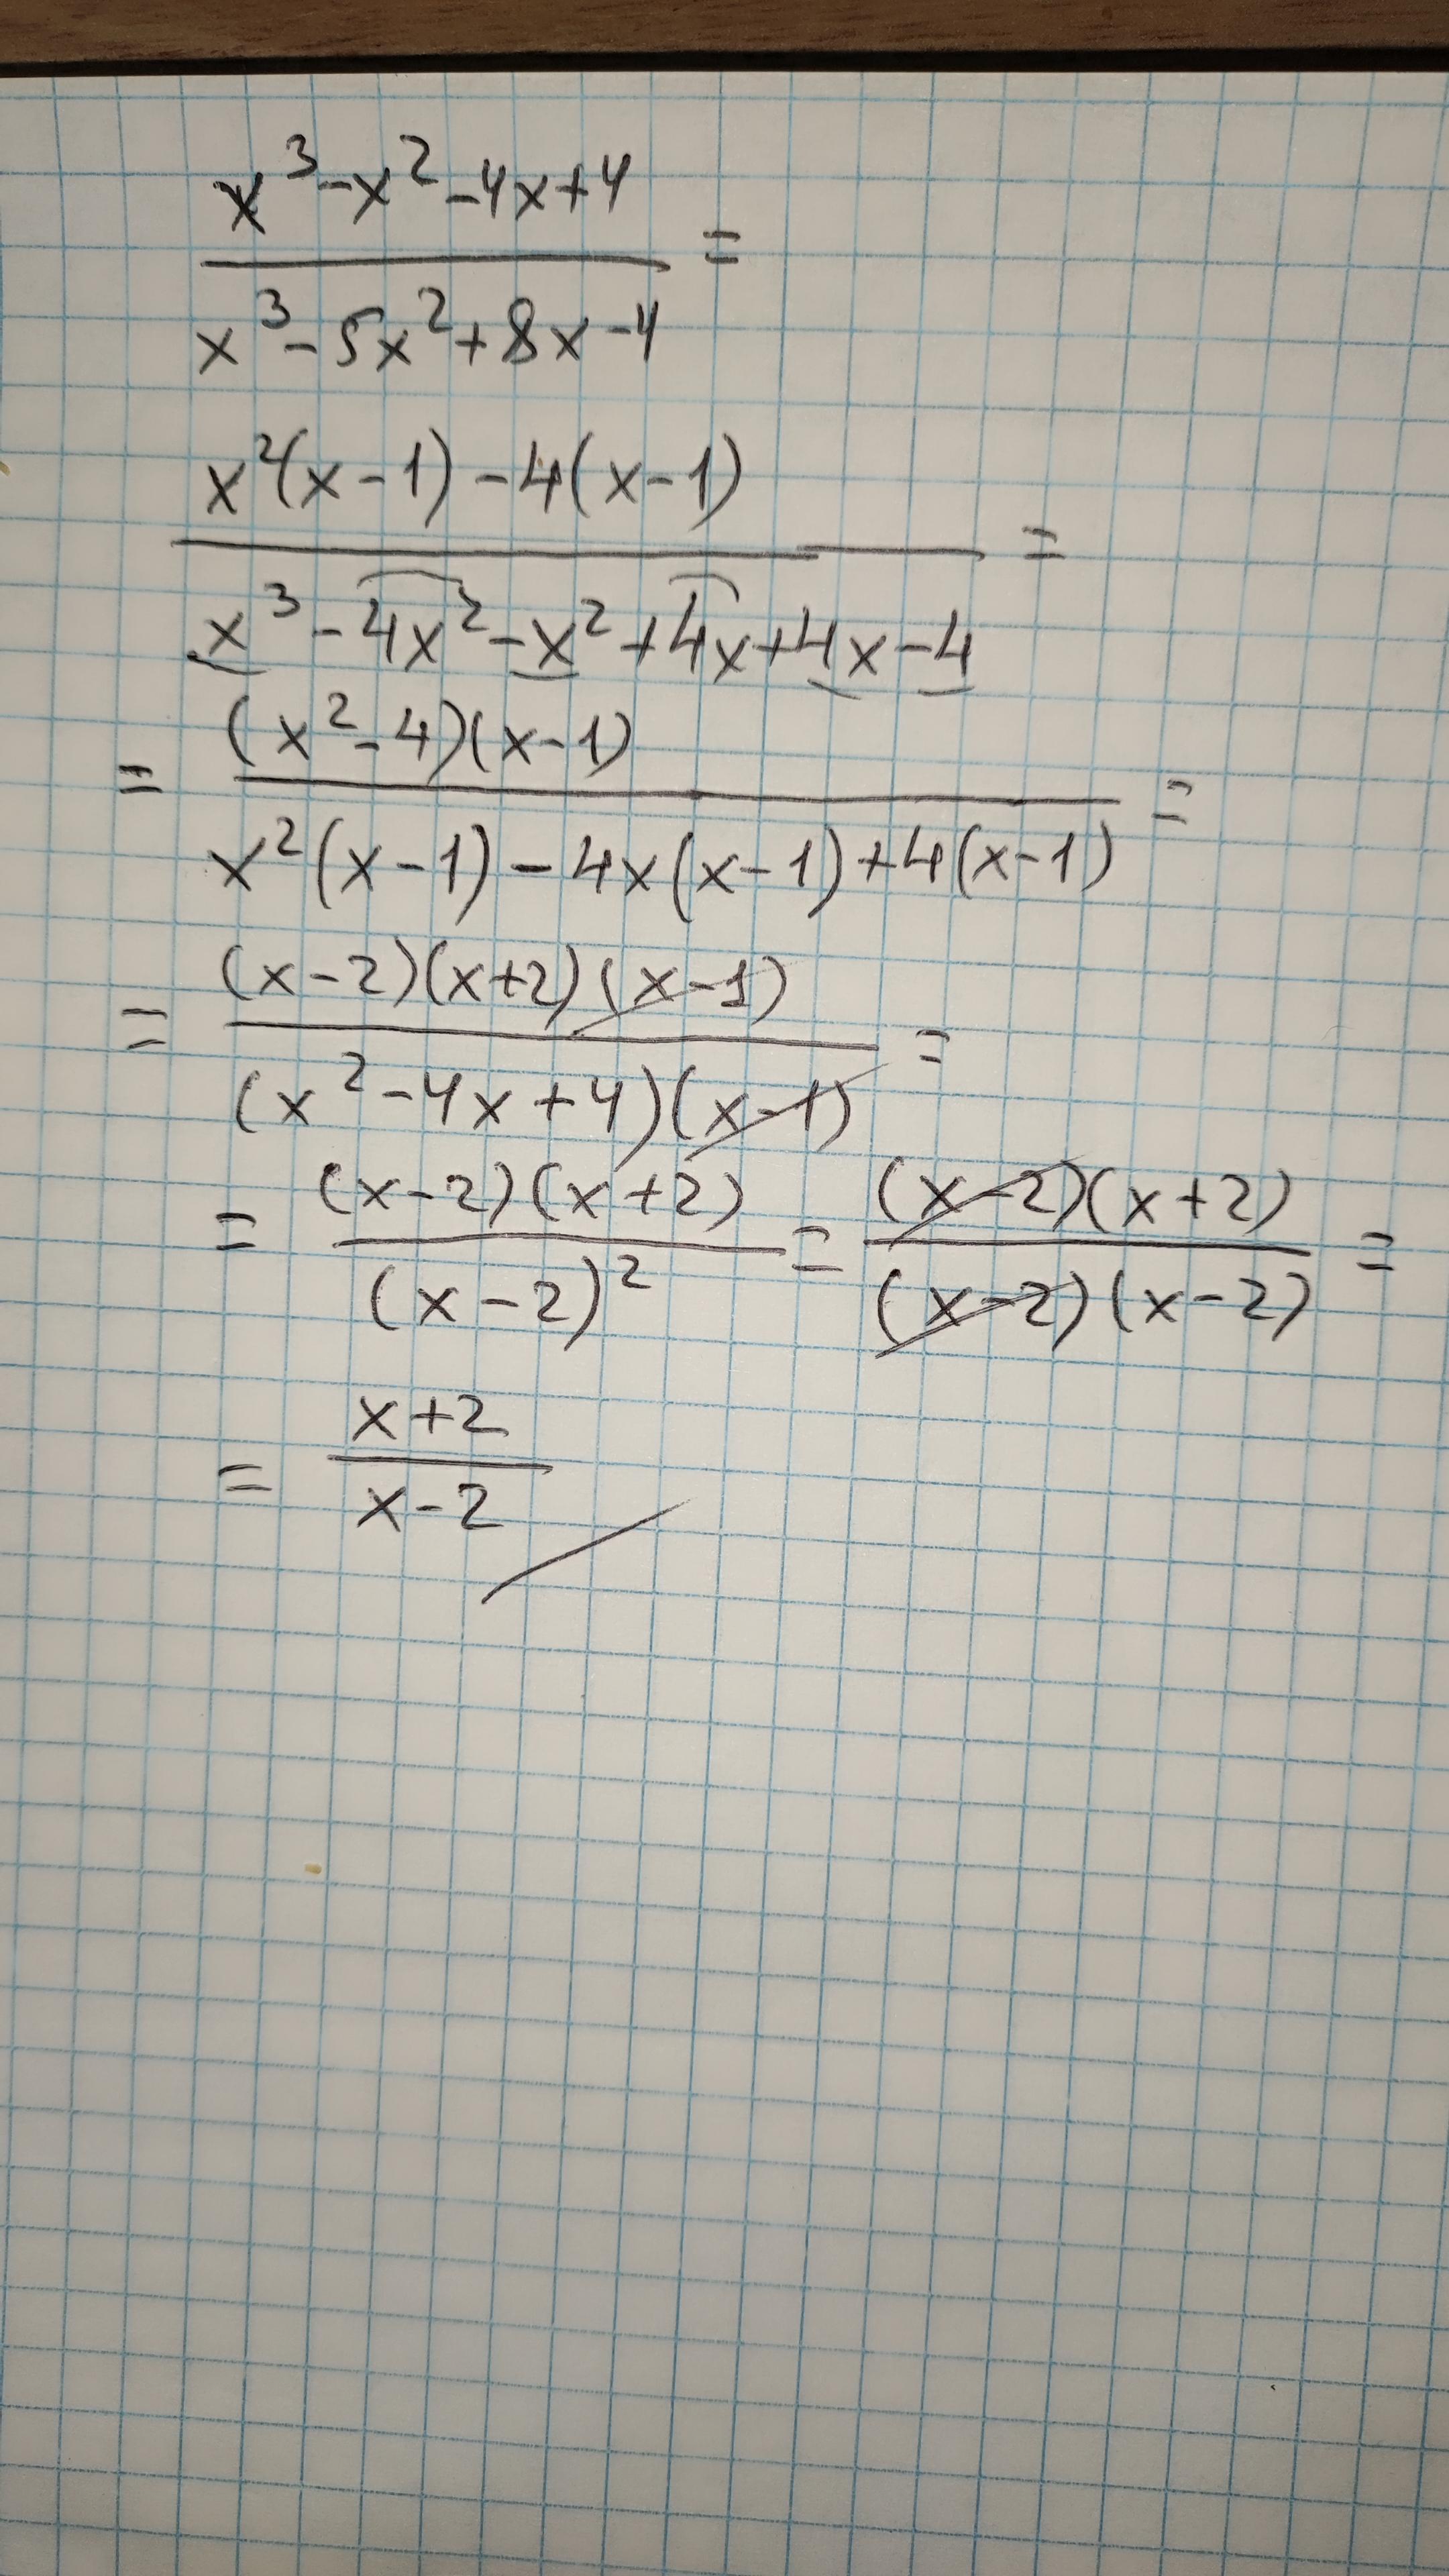 x³-x²-4x+4
=
x³-5x²+8x-4
x²(x-1)-4(x-1)
=
x³-4x²-x²+4x+4x-4
(x²-4)(x-1)
= =
x²(x-1)-4x(x-1)+4(x-1)
(x-2)(x+2)(x-1)
= =
(x²-4x+4)(x-1)
(x-2)(x+2) (x-2)(x+2)
= = =
(x-2)² (x-2)(x-2)
x+2
=
x-2